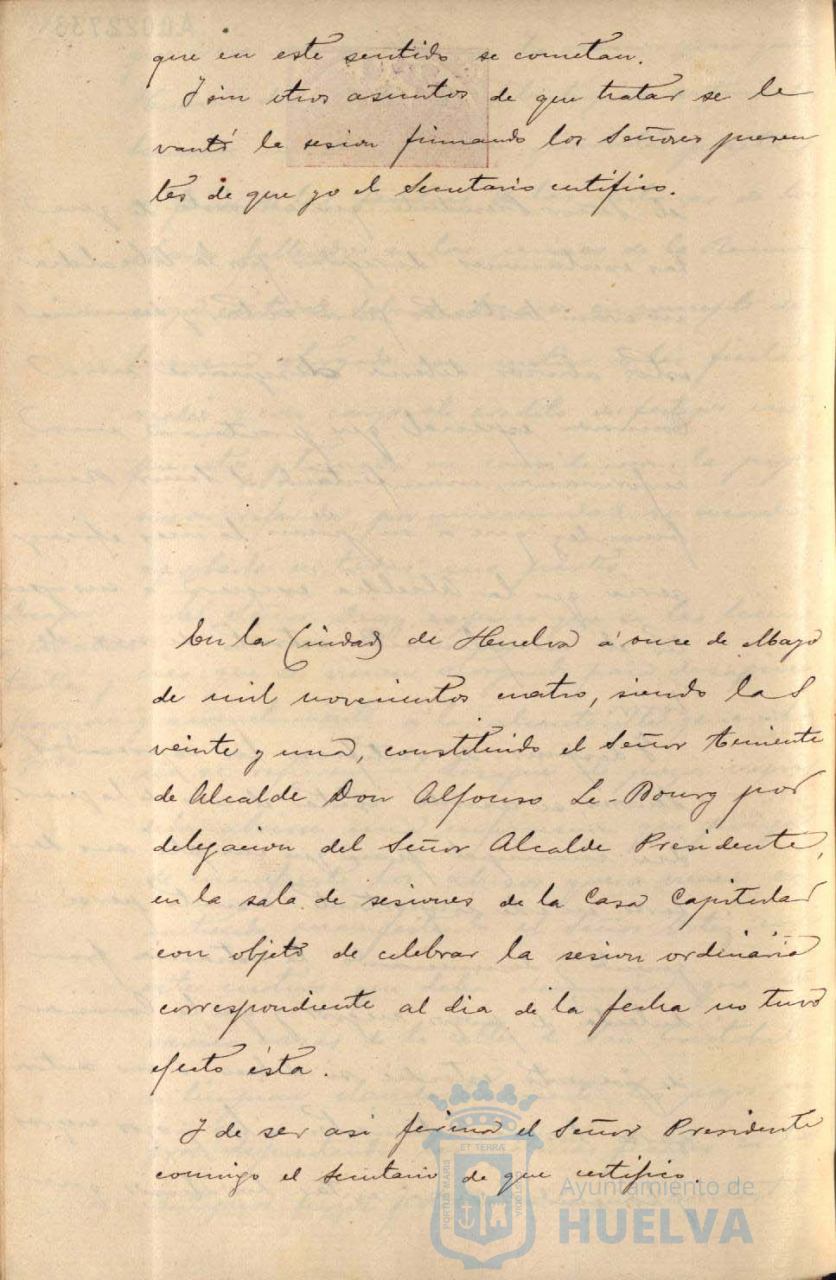 que en este sentido se cometan.
Y sin otros asuntos de que tratar se le
vantó la sesion firmando los Señores presen
tes de que yo el Secretario certifico.
En la Ciudad de Huelva á once de Mayo
de mil novecientos cuatro, siendo las
veinte y una, constituido el Señor Teniente
de Alcalde Don Alfonso Le-Bourg por
delegacion del Señor Alcalde Presidente,
en la sala de sesiones de la Casa Capitular
con objeto de celebrar la sesion ordinaria
correspondiente al dia de la fecha no tuvo
efecto ésta.
Y de ser asi firma el Señor Presidente
conmigo el Secretario de que certifico.
ET TERRÆ
PORTUS MARIS
CUSTODIA
Ayuntamiento de
HUELVA